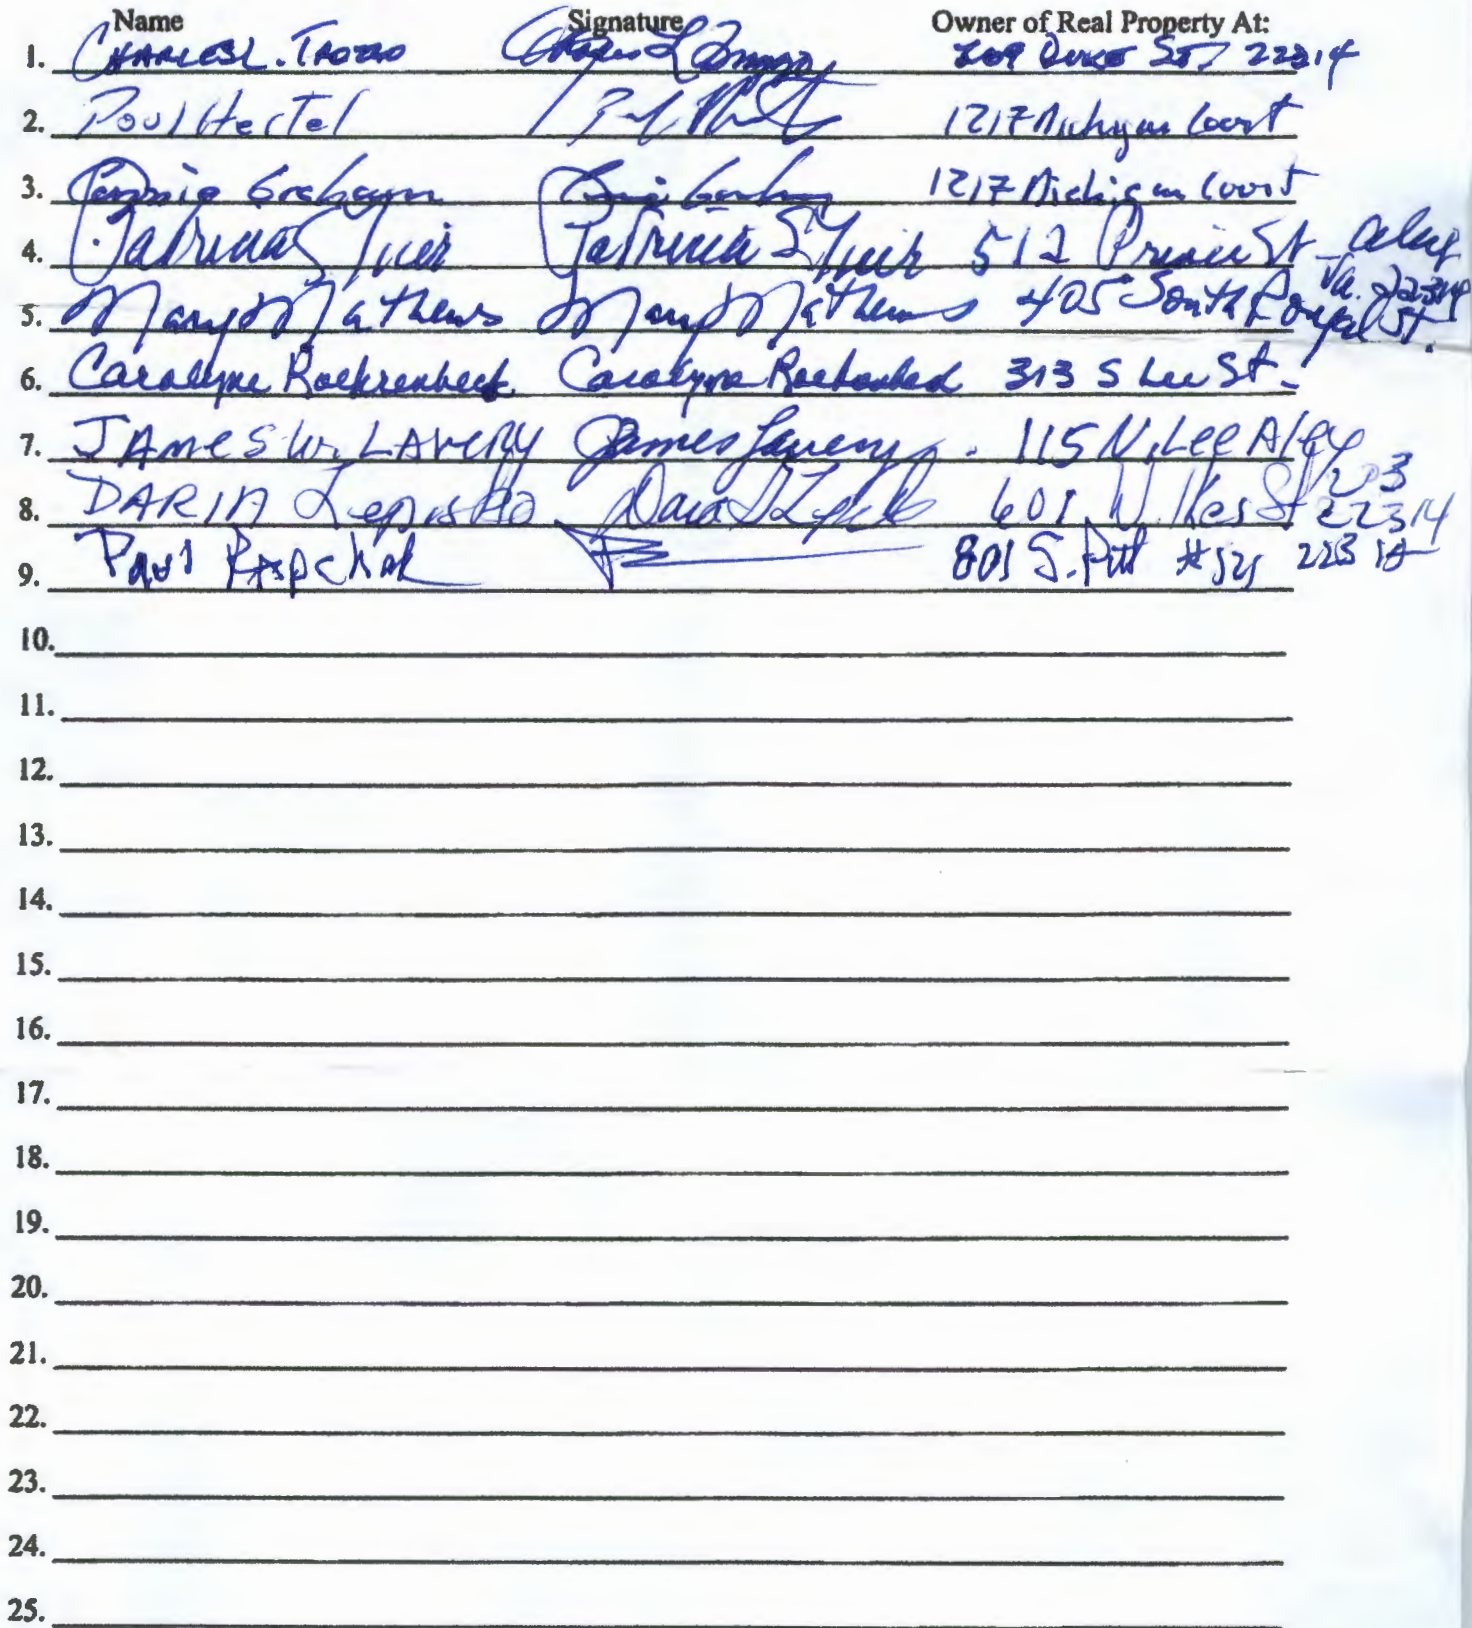 Name Signature Owner of Real Property At:
1. CHARLES L. Duke St 22314
2. Poul Hertel 1217 Michigan Court
3. Graham 1217 Michigan Court
4. Patricia Patricia S 512 Prince St Alex
Va. 22314
5. Mary Mathews Mary Mathews 405 South Royal St.
6. Carolyne Roehrenbeck Carolyne Roehrenbeck 313 S Lee St.
7. JAMES W. LAVERY James Lavery 115 N. Lee Alex
8. DARIA 601 Wilkes St 203 22314
9. Paul 801 S. Pitt # 22314
10.
11.
12.
13.
14.
15.
16.
17.
18.
19.
20.
21.
22.
23.
24.
25.